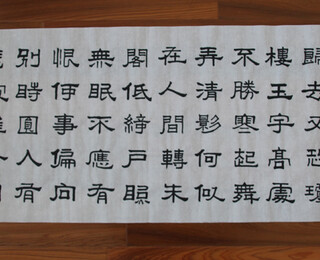 歸去又恐瓊
樓玉宇高處
不勝寒起舞
弄清影何似
在人間轉朱
閣低綺戶照
無眠不應有
恨何事偏向
別時圓人有